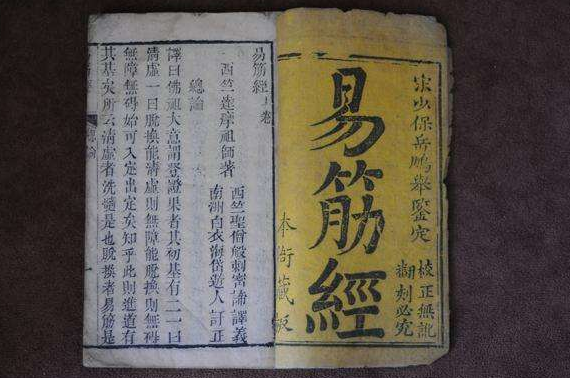 宋少保岳鵬舉鑒定
校正無訛
翻刻必究
易筋經
本衙藏板
易筋經上卷
西竺達摩祖師著
西竺聖僧般剌密諦譯義
南洲白衣海岱遊人訂正
總論
譯曰佛祖大意謂登證果者其初基有二一曰
清虛一曰脫換能清虛則無障能脫換則無礙
無障無礙始可入定出定矣知乎此則進道有
其基矣所云清虛者洗髓是也脫換者易筋是
總論